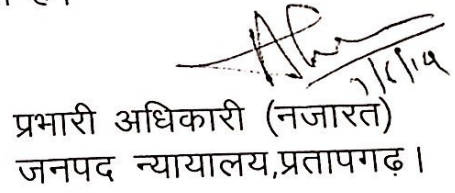 प्रभारी अधिकारी (नजारत)
जनपद न्यायालय,प्रतापगढ़।